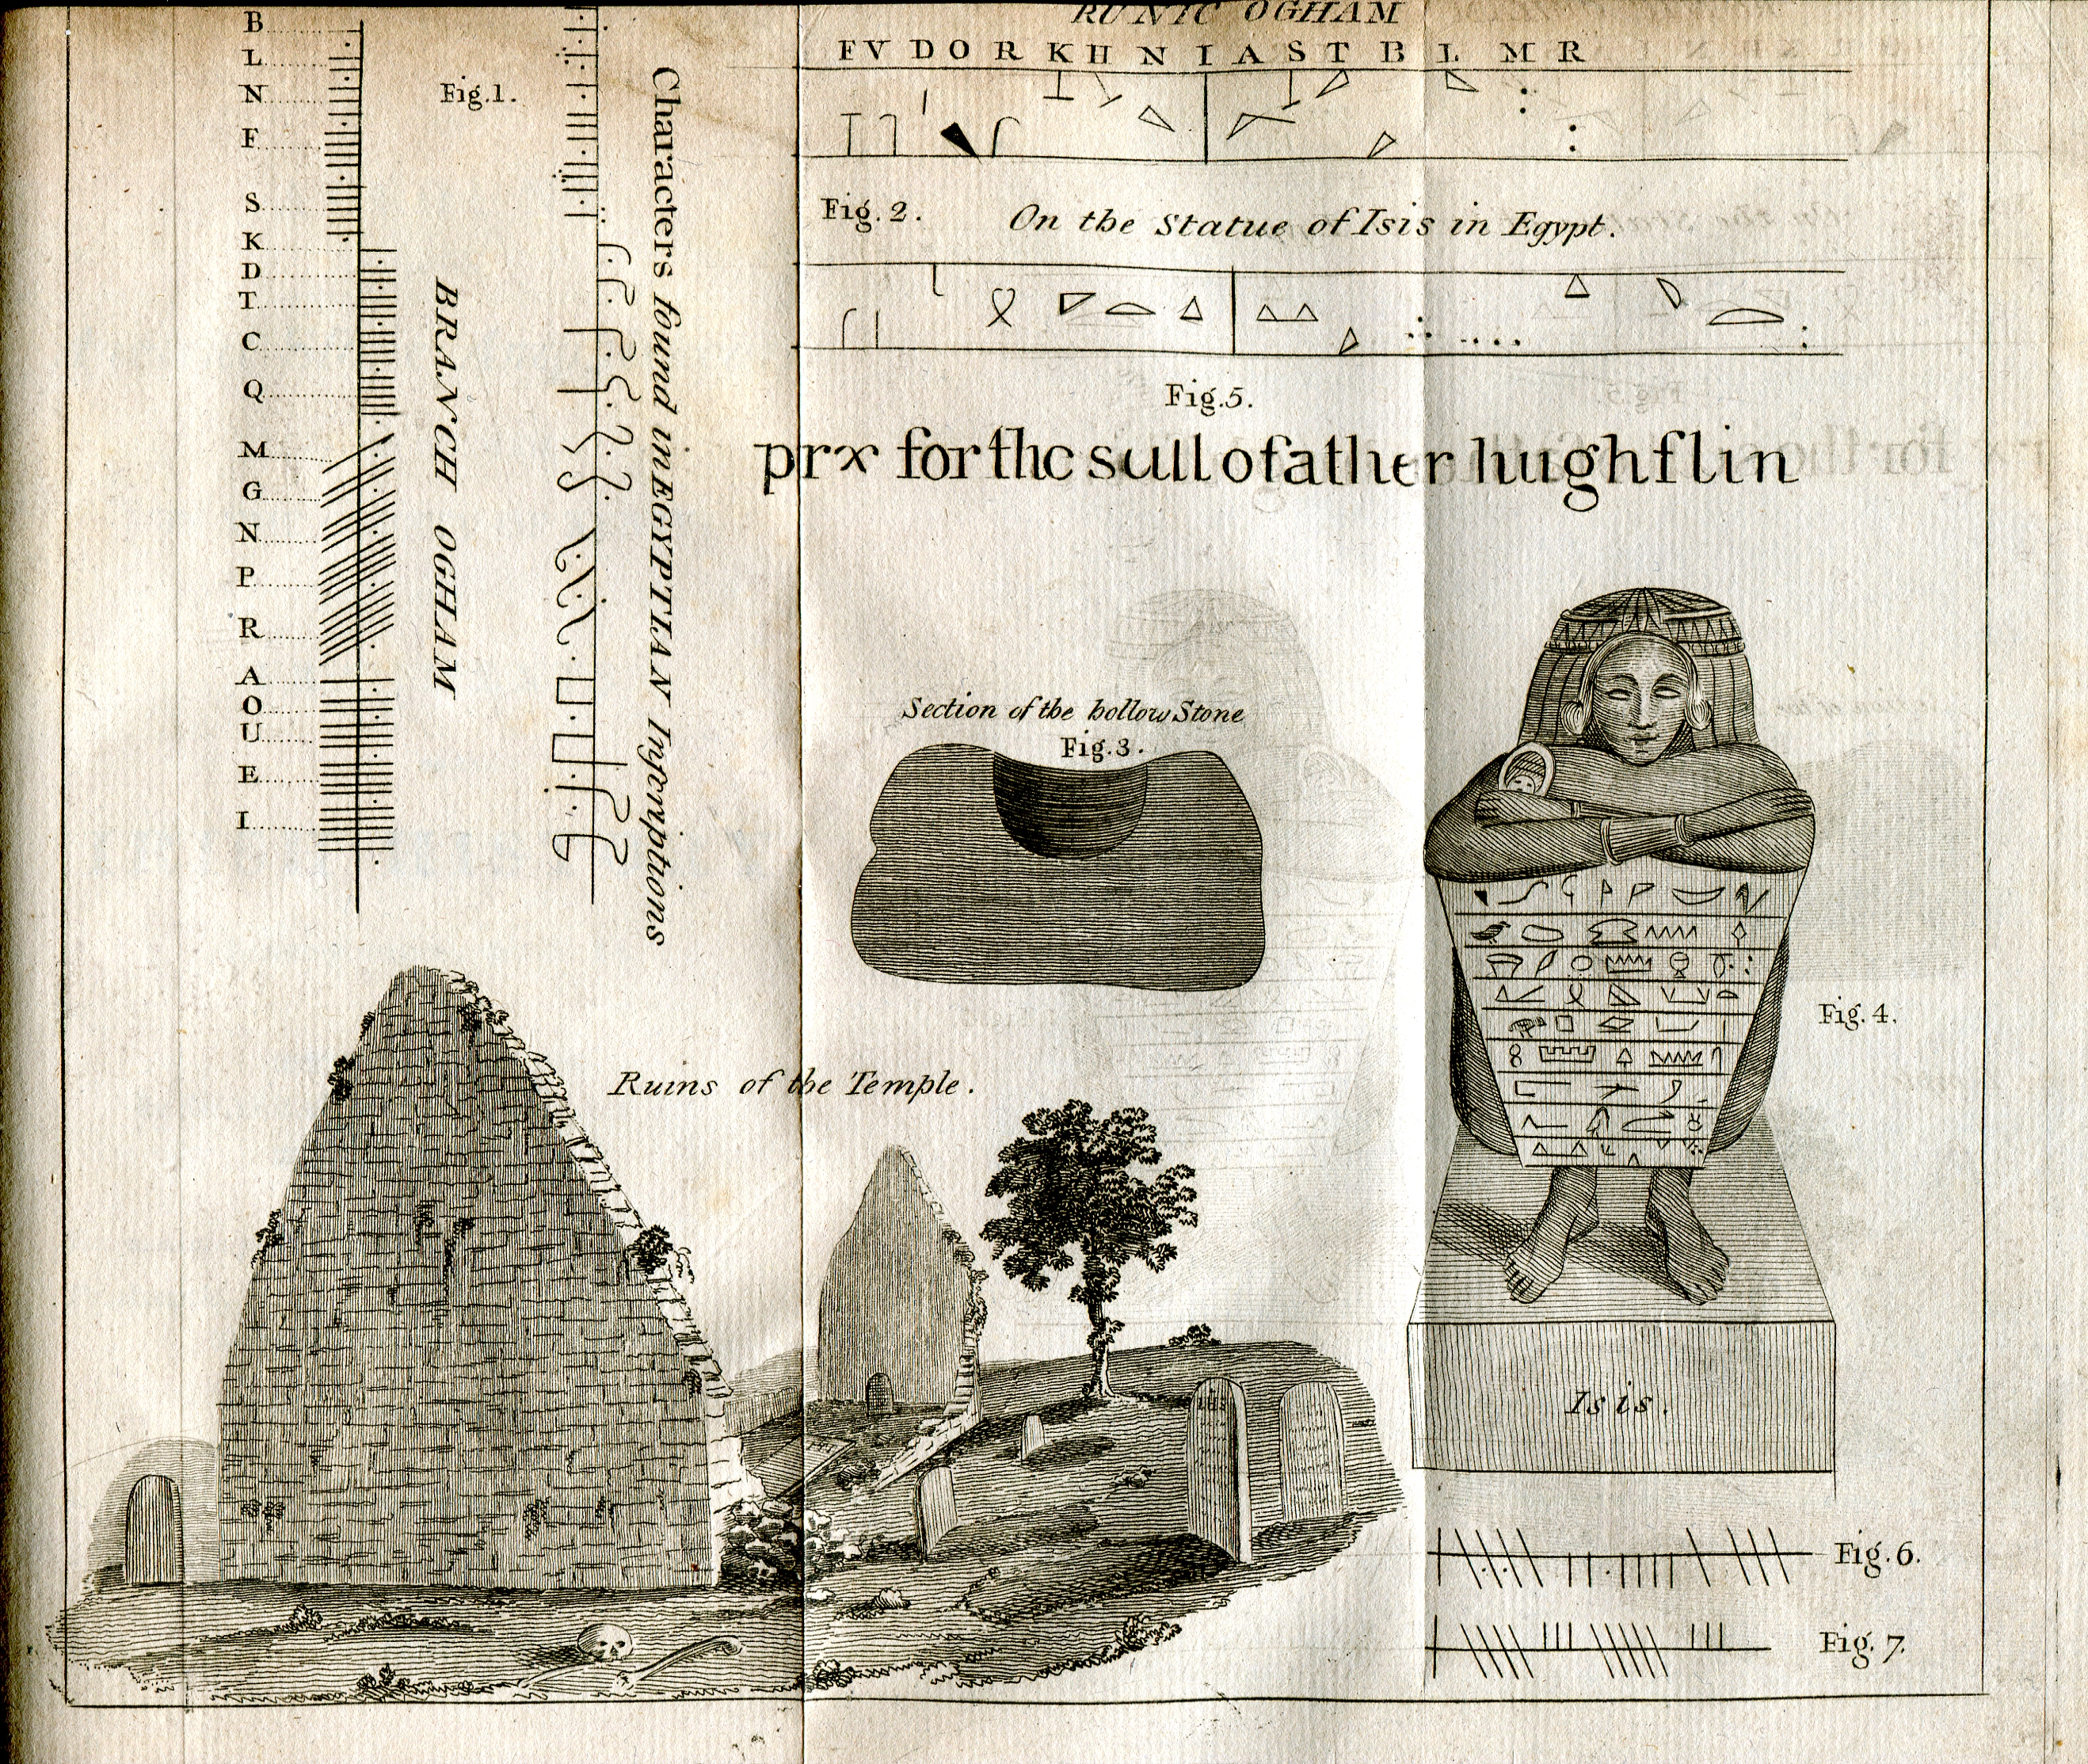 B
L
N
F
S
K
D
T
C
Q
M
G
N
P
R
A
O
U
E
I
Fig.1.
BRANCH OGHAM
Characters found in EGYPTIAN Inscriptions
RUNIC OGHAM
F V D O R K H N I A S T B L M R
Fig. 2.
On the Statue of Isis in Egypt.
Fig.5.
prx for thc sull o father hugh flin
Section of the hollow Stone
Fig.3.
Fig. 4.
Ruins of the Temple.
IHS
Isis.
Fig. 6.
Fig. 7.